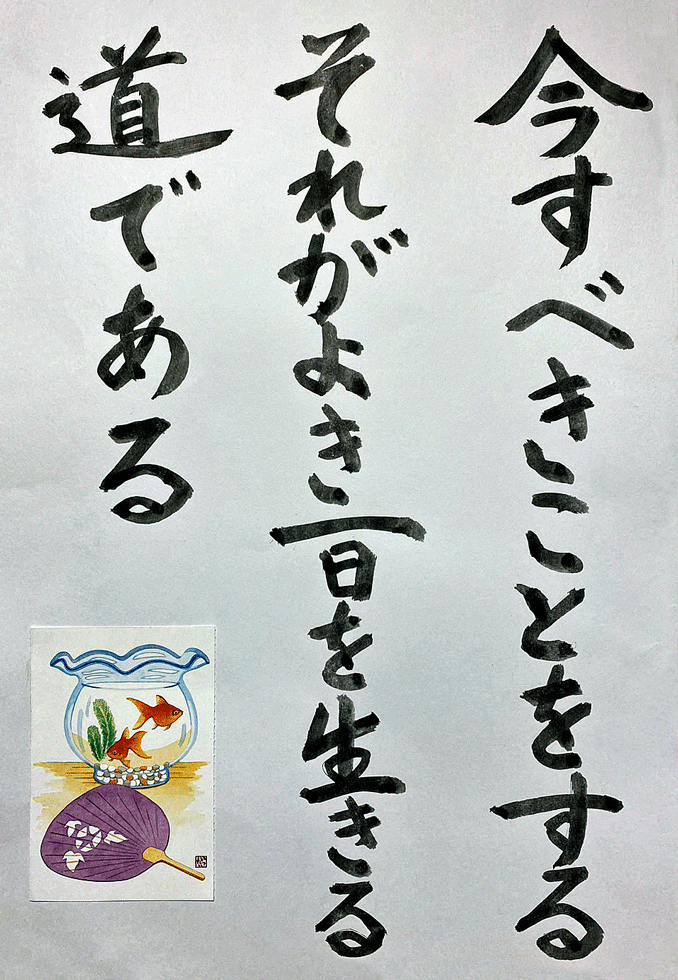 今すべきことをする
それがよき一日を生きる
道である